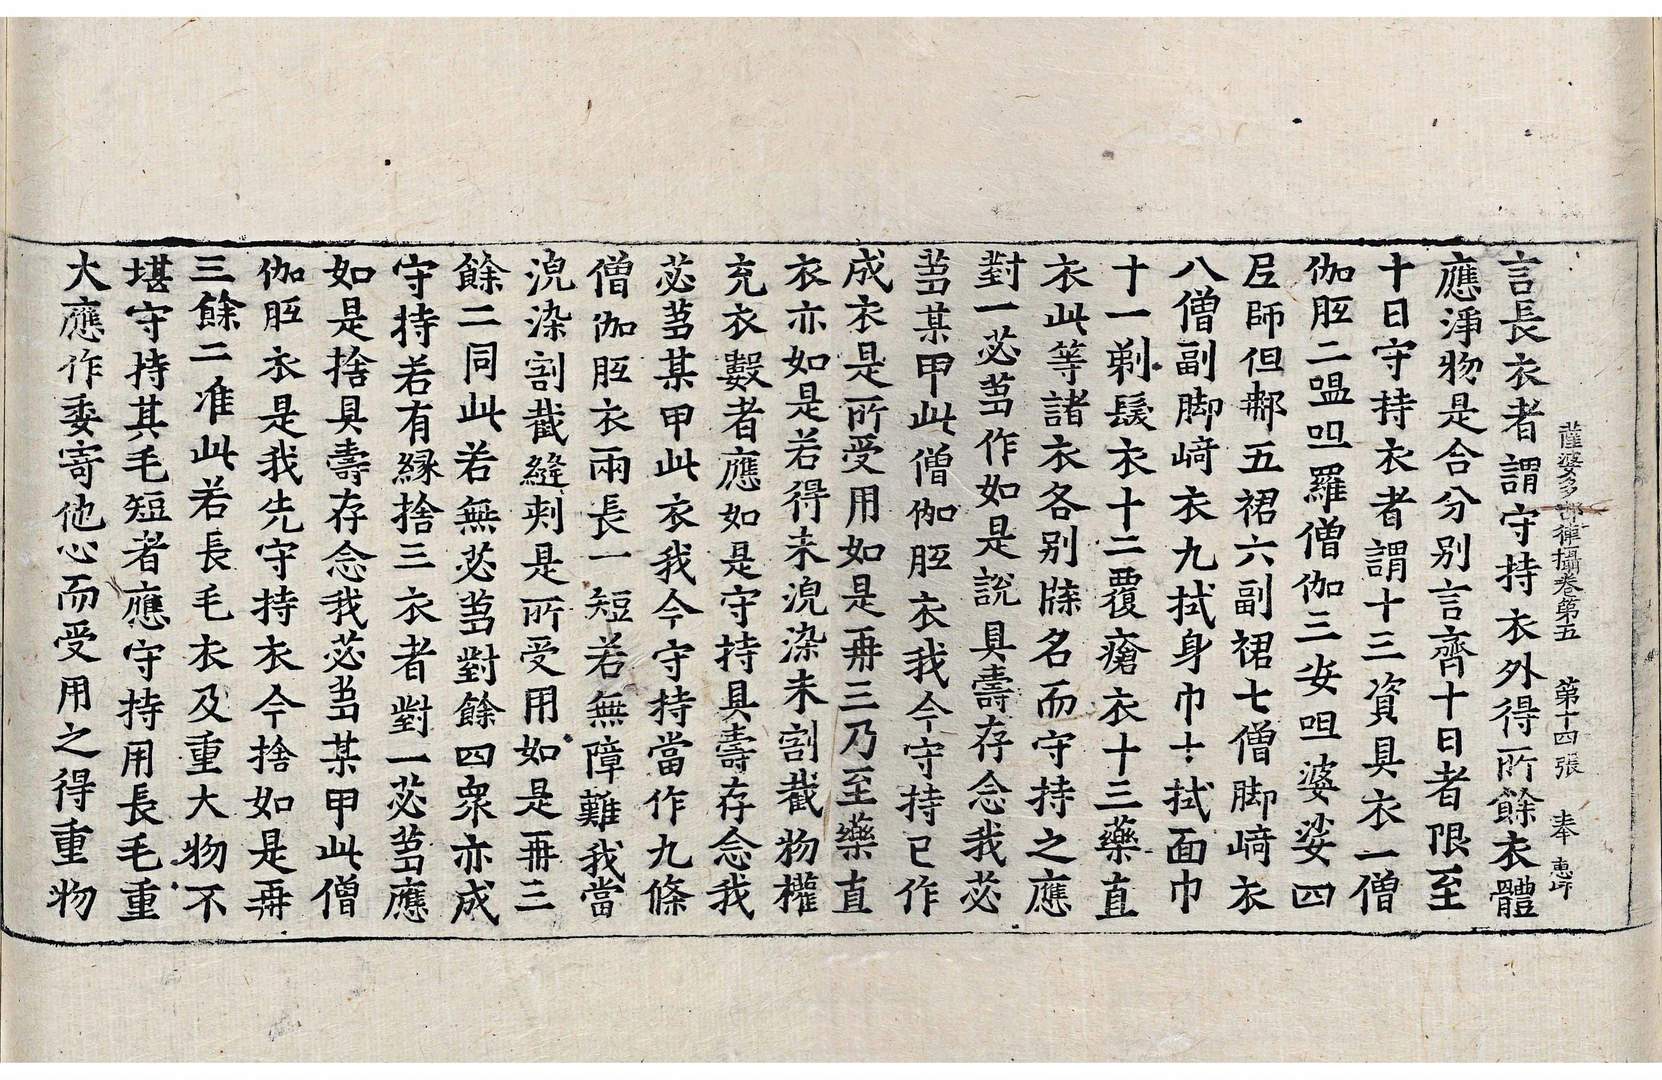 薩婆多部律攝卷第五　第十四張　奉　惠印
言長衣者謂守持衣外得所餘衣體
應淨物是合分別言齊十日者限至
十日守持衣者謂十三資具衣一僧
伽胝二嗢呾羅僧伽三安呾婆娑四
尼師但那五裙六副裙七僧脚崎衣
八僧副脚崎衣九拭身巾十拭面巾
十一剃髮衣十二覆瘡衣十三藥直
衣此等諸衣各別牒名而守持之應
對一苾芻作如是說具壽存念我苾
芻某甲此僧伽胝衣我今守持已作
成衣是所受用如是再三乃至藥直
衣亦如是若得未浣染未割截物權
充衣數者應如是守持具壽存念我
苾芻某甲此衣我今守持當作九條
僧伽胝衣兩長一短若無障難我當
浣染割截縫刺是所受用如是再三
餘二同此若無苾芻對餘四衆亦成
守持若有緣捨三衣者對一苾芻應
如是捨具壽存念我苾芻某甲此僧
伽胝衣是我先守持衣今捨如是再
三餘二准此若長毛衣及重大物不
堪守持其毛短者應守持用長毛重
大應作委寄他心而受用之得重物